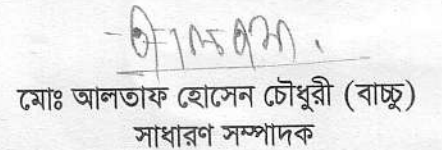 মোঃ আলতাফ হোসেন চৌধুরী (বাচ্চু)
সাধারণ সম্পাদক